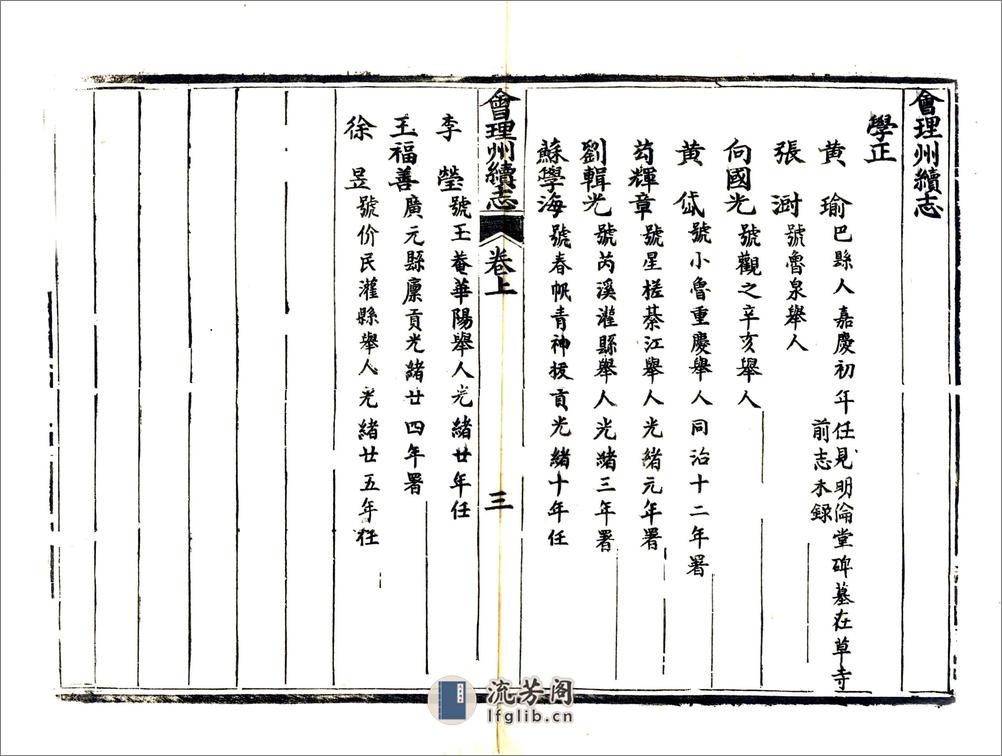 會理州續志
學正
黃瑜巴縣人嘉慶初年任見明倫堂碑墓在草寺
前志未録
張澍號魯泉舉人
向國光號觀之辛亥舉人
黃岱號小魯重慶舉人同治十二年署
苟輝章號星槎綦江舉人光緒元年署
劉輯光號芮溪灌縣舉人光緒三年署
蘇學海號春帆青神拔貢光緒十年任
會理州續志
卷上
三
李瑩號玉菴華陽舉人光緒廿年任
王福善廣元縣廩貢光緒廿四年署
徐昱號价民灌縣舉人光緒廿五年任
流芳阁
lfglib.cn